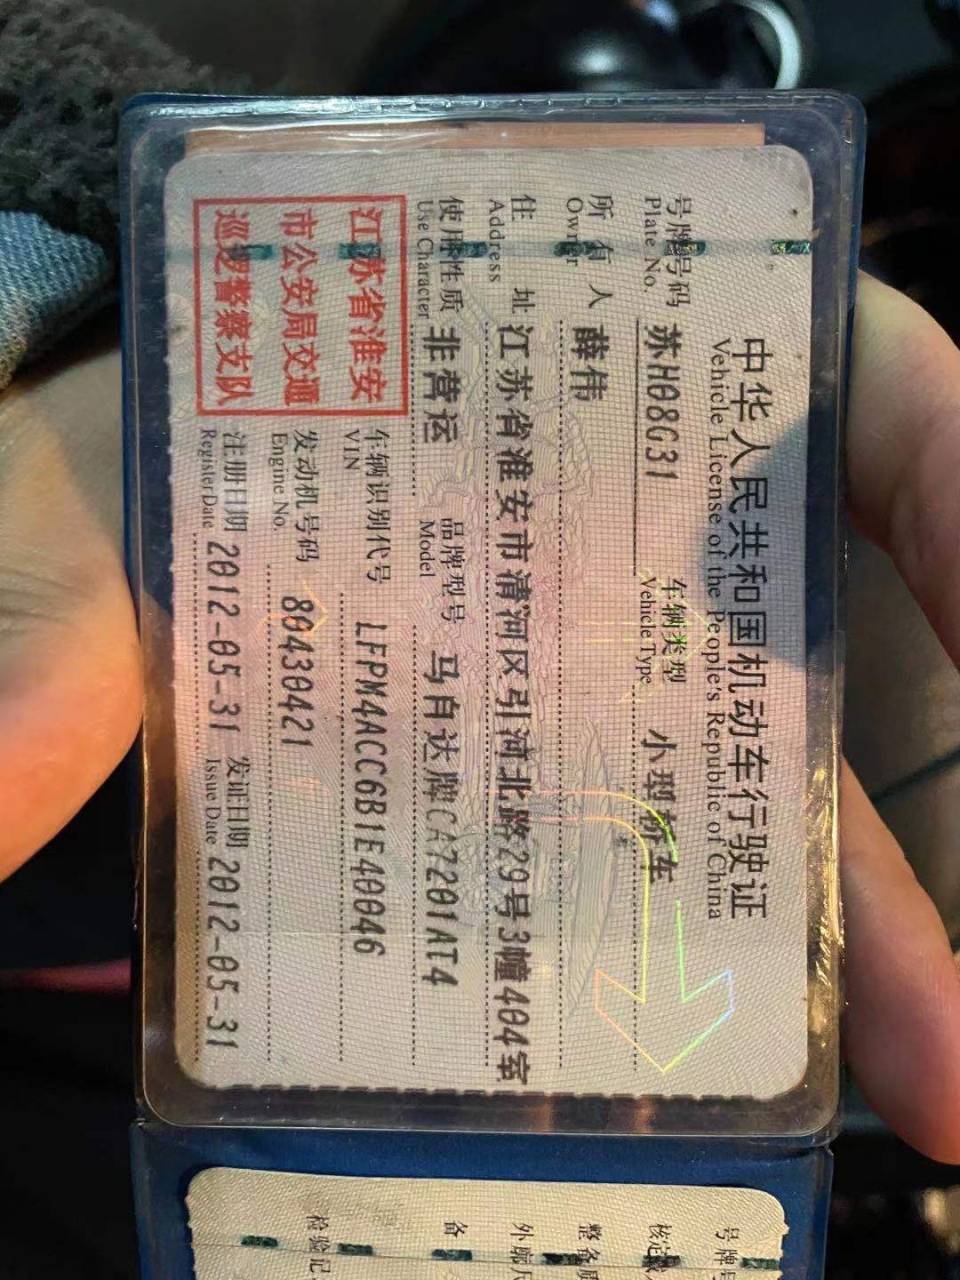 中华人民共和国机动车行驶证
Vehicle License of the People's Republic of China
号牌号码 苏H08G31 车辆类型 小型轿车
Plate No. Vehicle Type
所有人 薛伟
Owner
住址 江苏省淮安市清河区引河北路29号3幢404室
Address
使用性质 非营运 品牌型号 马自达牌CA7201AT4
Use Character Model
江苏省淮安
市公安局交通
巡逻警察支队
车辆识别代号 LFPM4ACC6B1E40046
VIN
发动机号码 80430421
Engine No.
注册日期 2012-05-31 发证日期 2012-05-31
Register Date Issue Date
号牌
核定载
整备质
外廓尺
备
检验记